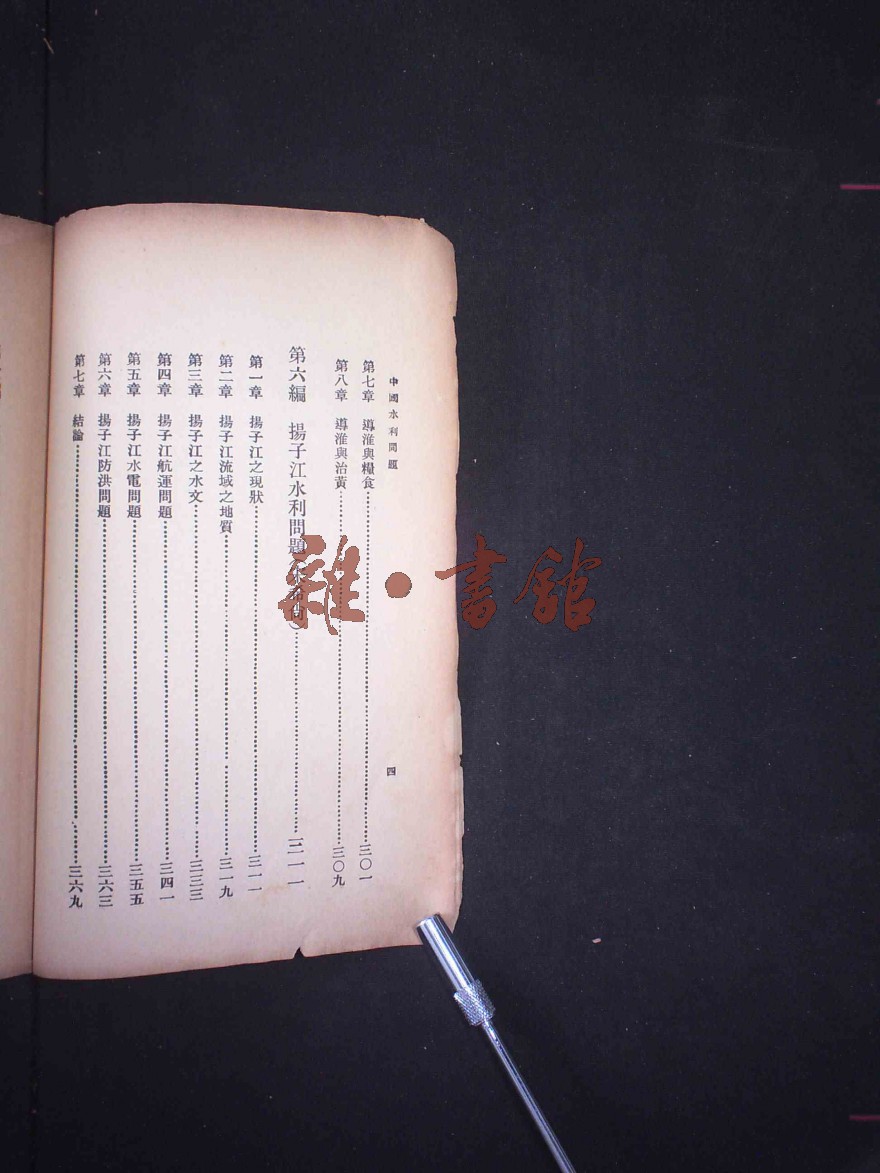 中國水利問題
四
第七章 導淮與糧食 三〇一
第八章 導淮與治黃 三〇九
第六編 揚子江水利問題 三一一
第一章 揚子江之現狀 三一一
第二章 揚子江流域之地質 三一九
第三章 揚子江之水文 三三三
第四章 揚子江航運問題 三四一
第五章 揚子江水電問題 三五五
第六章 揚子江防洪問題 三六三
第七章 結論 三六九
雜·書館